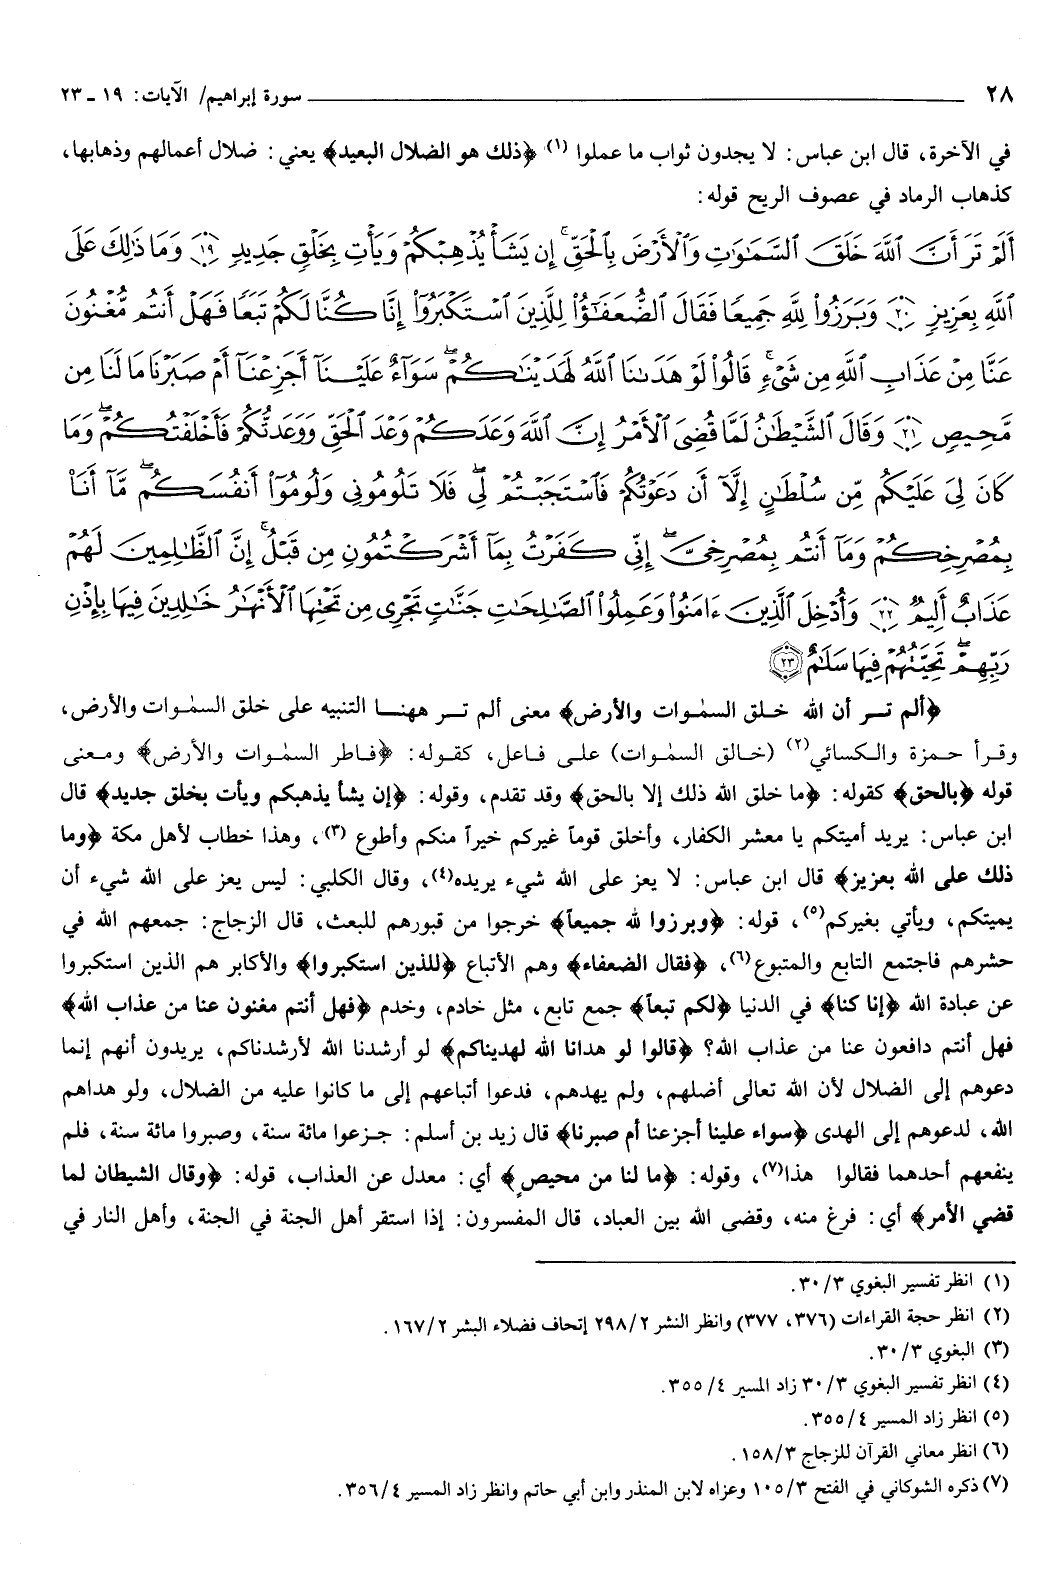 ٢٨ سورة إبراهيم/ الآيات: ١٩ ـ ٢٣
في الآخرة، قال ابن عباس: لا يجدون ثواب ما عملوا (١) ﴿ذلك هو الضلال البعيد﴾ يعني: ضلال أعمالهم وذهابها،
كذهاب الرماد في عصوف الريح قوله:
أَلَمْ تَرَ أَنَّ ٱللَّهَ خَلَقَ ٱلسَّمَٰوَٰتِ وَٱلْأَرْضَ بِٱلْحَقِّ ۚ إِن يَشَأْ يُذْهِبْكُمْ وَيَأْتِ بِخَلْقٍ جَدِيدٍ ١٩ وَمَا ذَٰلِكَ عَلَى
ٱللَّهِ بِعَزِيزٍ ٢٠ وَبَرَزُوا۟ لِلَّهِ جَمِيعًا فَقَالَ ٱلضُّعَفَٰٓؤُا۟ لِلَّذِينَ ٱسْتَكْبَرُوٓا۟ إِنَّا كُنَّا لَكُمْ تَبَعًا فَهَلْ أَنتُم مُّغْنُونَ
عَنَّا مِنْ عَذَابِ ٱللَّهِ مِن شَىْءٍ ۚ قَالُوا۟ لَوْ هَدَىٰنَا ٱللَّهُ لَهَدَيْنَٰكُمْ ۖ سَوَآءٌ عَلَيْنَآ أَجَزِعْنَآ أَمْ صَبَرْنَا مَا لَنَا مِن
مَّحِيصٍ ٢١ وَقَالَ ٱلشَّيْطَٰنُ لَمَّا قُضِىَ ٱلْأَمْرُ إِنَّ ٱللَّهَ وَعَدَكُمْ وَعْدَ ٱلْحَقِّ وَوَعَدتُّكُمْ فَأَخْلَفْتُكُمْ ۖ وَمَا
كَانَ لِىَ عَلَيْكُم مِّن سُلْطَٰنٍ إِلَّآ أَن دَعَوْتُكُمْ فَٱسْتَجَبْتُمْ لِى ۖ فَلَا تَلُومُونِى وَلُومُوٓا۟ أَنفُسَكُم ۖ مَّآ أَنَا۠
بِمُصْرِخِكُمْ وَمَآ أَنتُم بِمُصْرِخِىَّ ۖ إِنِّى كَفَرْتُ بِمَآ أَشْرَكْتُمُونِ مِن قَبْلُ ۗ إِنَّ ٱلظَّٰلِمِينَ لَهُمْ
عَذَابٌ أَلِيمٌ ٢٢ وَأُدْخِلَ ٱلَّذِينَ ءَامَنُوا۟ وَعَمِلُوا۟ ٱلصَّٰلِحَٰتِ جَنَّٰتٍ تَجْرِى مِن تَحْتِهَا ٱلْأَنْهَٰرُ خَٰلِدِينَ فِيهَا بِإِذْنِ
رَبِّهِمْ ۖ تَحِيَّتُهُمْ فِيهَا سَلَٰمٌ ٢٣
﴿ألم تـر أن الله خـلق السمٰوات والأرض﴾ معنى ألم تـر ههنـا التنبيه على خلق السمٰوات والأرض،
وقـرأ حمـزة والكسائي(٢) (خالق السمٰوات) علـى فـاعل، كقـوله: ﴿فـاطر السمٰوات والأرض﴾ ومعنى
قوله ﴿بالحق﴾ كقوله: ﴿ما خلق الله ذلك إلا بالحق﴾ وقد تقدم، وقوله: ﴿إن يشأ يذهبكم ويأت بخلق جديد﴾ قال
ابن عباس: يريد أميتكم يا معشر الكفار، وأخلق قوماً غيركم خيراً منكم وأطوع (٣)، وهذا خطاب لأهل مكة ﴿وما
ذلك على الله بعزيز﴾ قال ابن عباس: لا يعز على الله شيء يريده(٤)، وقال الكلبي: ليس يعز على الله شيء أن
يميتكم، ويأتي بغيركم(٥)، قوله: ﴿وبرزوا لله جميعاً﴾ خرجوا من قبورهم للبعث، قال الزجاج: جمعهم الله في
حشرهم فاجتمع التابع والمتبوع(٦)، ﴿فقال الضعفاء﴾ وهم الأتباع ﴿للذين استكبروا﴾ والأكابر هم الذين استكبروا
عن عبادة الله ﴿إنا كنا﴾ في الدنيا ﴿لكم تبعاً﴾ جمع تابع، مثل خادم، وخدم ﴿فهل أنتم مغنون عنا من عذاب الله﴾
فهل أنتم دافعون عنا من عذاب الله؟ ﴿قالوا لو هدانا الله لهديناكم﴾ لو أرشدنا الله لأرشدناكم، يريدون أنهم إنما
دعوهم إلى الضلال لأن الله تعالى أضلهم، ولم يهدهم، فدعوا أتباعهم إلى ما كانوا عليه من الضلال، ولو هداهم
الله، لدعوهم إلى الهدى ﴿سواء علينا أجزعنا أم صبرنا﴾ قال زيد بن أسلم: جـزعوا مائة سنة، وصبروا مائة سنة، فلم
ينفعهم أحدهما فقالوا هذا(٧)، وقوله: ﴿ما لنا من محيصٍ﴾ أي: معدل عن العذاب، قوله: ﴿وقال الشيطان لما
قضي الأمر﴾ أي: فرغ منه، وقضي الله بين العباد، قال المفسرون: إذا استقر أهل الجنة في الجنة، وأهل النار في
(١) انظر تفسير البغوي ٣٠/٣.
(٢) انظر حجة القراءات (٣٧٦، ٣٧٧) وانظر النشر ٢٩٨/٢ إتحاف فضلاء البشر ١٦٧/٢.
(٣) البغوي ٣٠/٣.
(٤) انظر تفسير البغوي ٣٠/٣ زاد المسير ٣٥٥/٤.
(٥) انظر زاد المسير ٣٥٥/٤.
(٦) انظر معاني القرآن للزجاج ١٥٨/٣.
(٧) ذكره الشوكاني في الفتح ١٠٥/٣ وعزاه لابن المنذر وابن أبي حاتم وانظر زاد المسير ٣٥٦/٤.